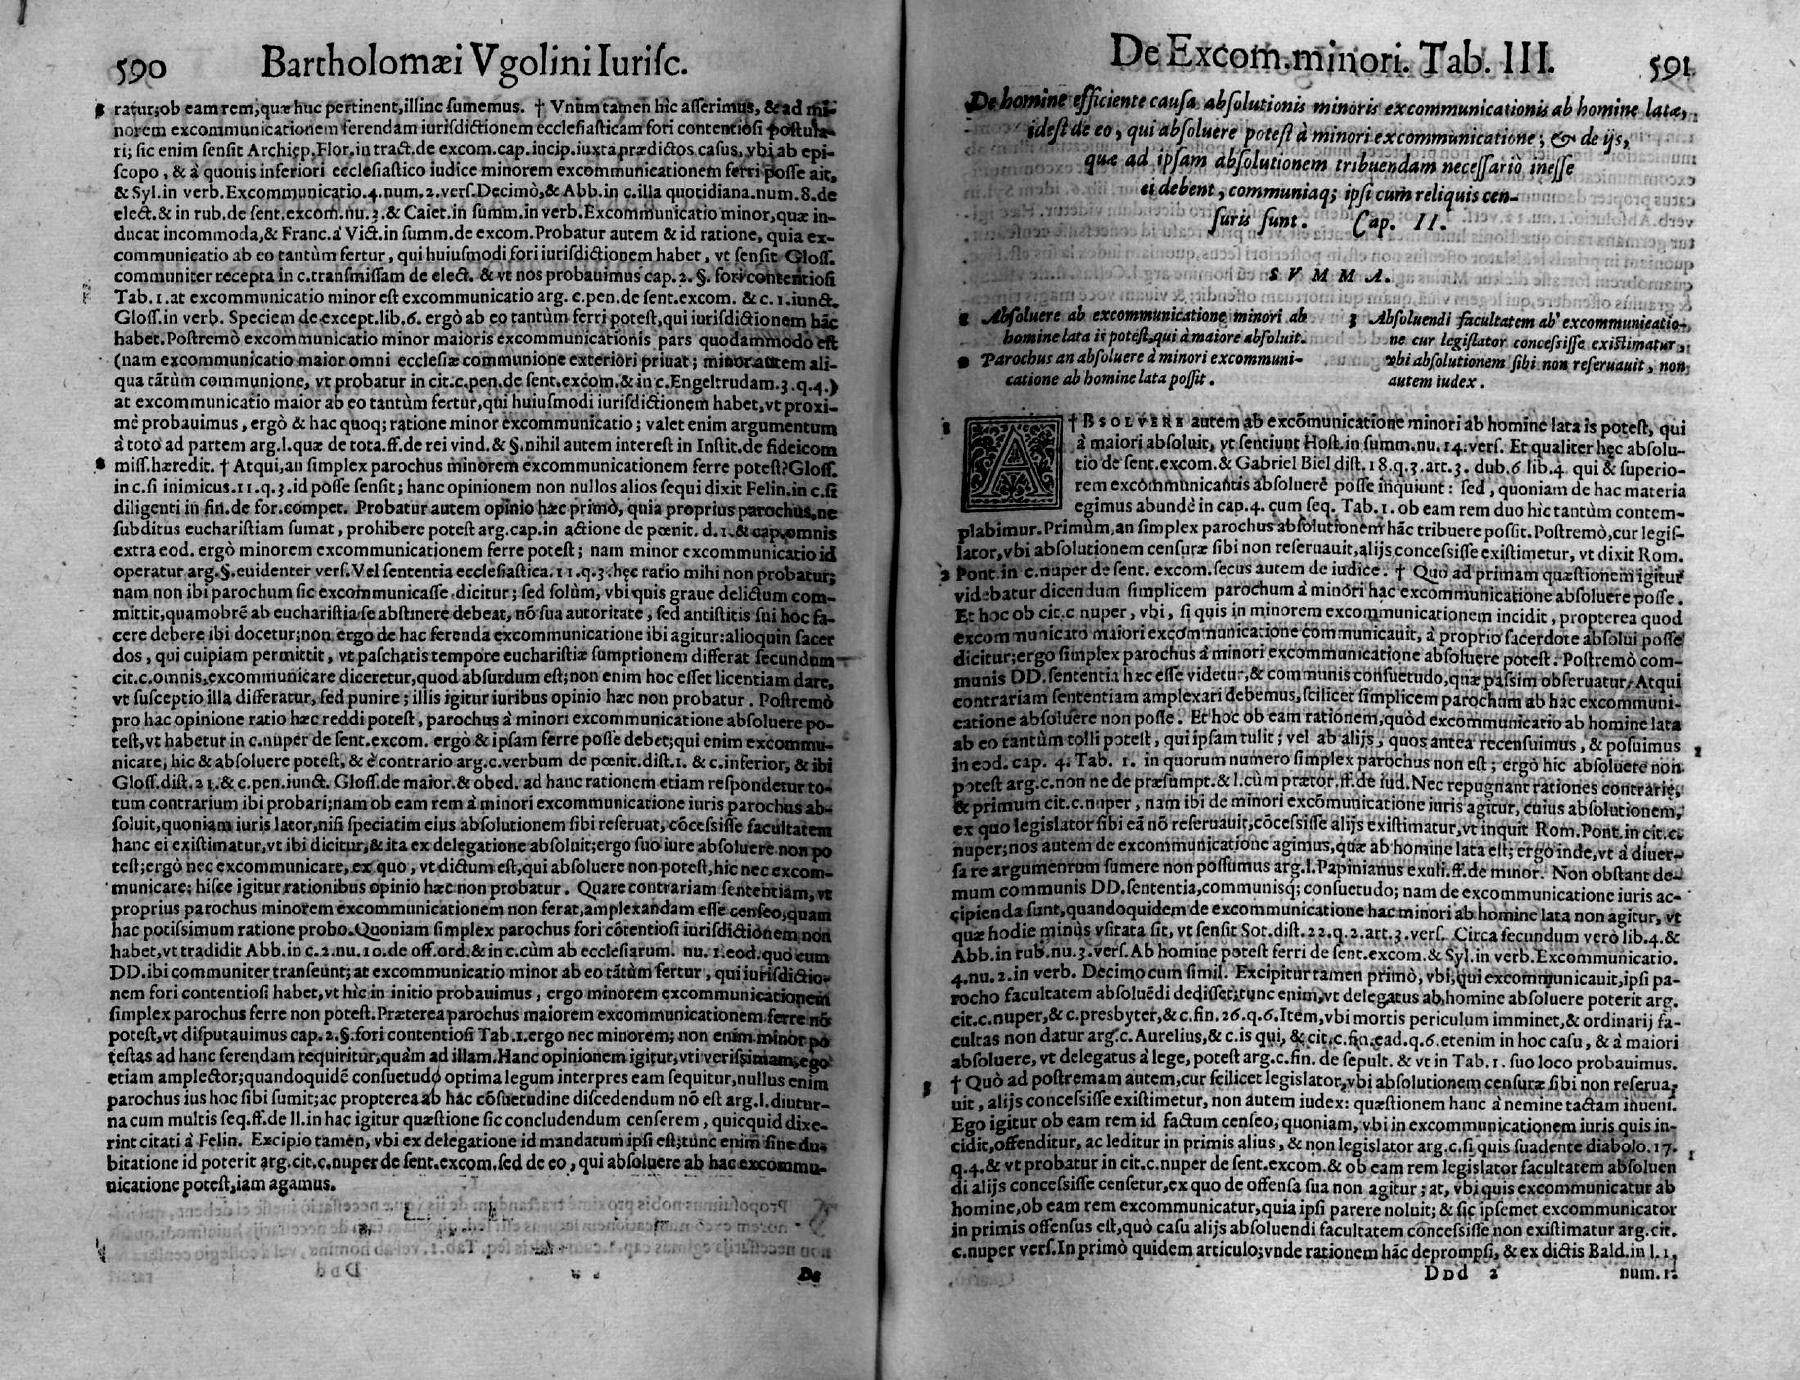 590 Bartholomæi Vgolini Iuriſc.
ratur; ob eam rem, quæ huc pertinent, illinc ſumemus. † Vnum tamen hic aſſerimus, & ad mi-
norem excommunicationem ferendam iuriſdictionem eccleſiaſticam fori contentioſi poſtula-
ri; ſic enim ſenſit Archiep. Flor. in tract. de excom. cap. incip. iuxta prædictos caſus, vbi ab epi-
ſcopo, & à quouis inferiori eccleſiaſtico iudice minorem excommunicationem ferri poſſe ait,
& Syl. in verb. Excommunicatio. 4. num. 2. verſ. Decimò, & Abb. in c. illa quotidiana. num. 8. de
elect. & in rub. de ſent. excom. nu. 3. & Caiet. in ſumm. in verb. Excommunicatio minor, quæ in-
ducat incommoda, & Franc. à Vict. in ſumm. de excom. Probatur autem & id ratione, quia ex-
communicatio ab eo tantùm fertur, qui huiuſmodi fori iuriſdictionem habet, vt ſenſit Gloſſ.
communiter recepta in c. tranſmiſſam de elect. & vt nos probauimus cap. 2. §. fori contentioſi
Tab. 1. at excommunicatio minor eſt excommunicatio arg. c. pen. de ſent. excom. & c. 1. iunct.
Gloſſ. in verb. Speciem de except. lib. 6. ergò ab eo tantùm ferri poteſt, qui iuriſdictionem hāc
habet. Poſtremò excommunicatio minor maioris excommunicationis pars quodammodo eſt
(nam excommunicatio maior omni eccleſiæ communione exteriori priuat; minor autem ali-
qua tātùm communione, vt probatur in cit. c. pen. de ſent. excom. & in c. Engeltrudam. 3. q. 4.)
at excommunicatio maior ab eo tantùm fertur, qui huiuſmodi iuriſdictionem habet, vt proxi-
mè probauimus, ergò & hac quoq; ratione minor excommunicatio; valet enim argumentum
à toto ad partem arg. l. quæ de tota. ff. de rei vind. & §. nihil autem intereſt in Inſtit. de fideicom
miſſ. hæredit. † Atqui, an ſimplex parochus minorem excommunicationem ferre poteſt? Gloſſ.
in c. ſi inimicus. 11. q. 3. id poſſe ſenſit; hanc opinionem non nullos alios ſequi dixit Felin. in c. ſi
diligenti in fin. de for. compet. Probatur autem opinio hæc primò, quia proprius parochus, ne
ſubditus euchariſtiam ſumat, prohibere poteſt arg. cap. in actione de pœnit. d. 1. & cap. omnis
extra eod. ergò minorem excommunicationem ferre poteſt; nam minor excommunicatio id
operatur arg. §. euidenter verſ. Vel ſententia eccleſiaſtica. 11. q. 3. hęc ratio mihi non probatur;
nam non ibi parochum ſic excommunicaſſe dicitur; ſed ſolùm, vbi quis graue delictum com-
mittit, quamobrē ab euchariſtia ſe abſtinere debeat, nō ſua autoritate, ſed antiſtitis ſui hoc fa-
cere debere ibi docetur; non ergo de hac ferenda excommunicatione ibi agitur: alioquin ſacer
dos, qui cuipiam permittit, vt paſchatis tempore euchariſtiæ ſumptionem differat ſecundum
cit. c. omnis, excommunicare diceretur, quod abſurdum eſt; non enim hoc eſſet licentiam dare,
vt ſuſceptio illa differatur, ſed punire; illis igitur iuribus opinio hæc non probatur. Poſtremò
pro hac opinione ratio hæc reddi poteſt, parochus à minori excommunicatione abſoluere po-
teſt, vt habetur in c. nuper de ſent. excom. ergò & ipſam ferre poſſe debet; qui enim excommu-
nicare, hic & abſoluere poteſt, & è contrario arg. c. verbum de pœnit. diſt. 1. & c. inferior, & ibi
Gloſſ. diſt. 21. & c. pen. iunct. Gloſſ. de maior. & obed. ad hanc rationem etiam reſpondetur to-
tum contrarium ibi probari; nam ob eam rem à minori excommunicatione iuris parochus ab-
ſoluit, quoniam iuris lator, niſi ſpeciatim eius abſolutionem ſibi reſeruat, cōceſſiſſe facultatem
hanc ei exiſtimatur, vt ibi dicitur, & ita ex delegatione abſoluit; ergo ſuo iure abſoluere non po
teſt; ergò nec excommunicare, ex quo, vt dictum eſt, qui abſoluere non poteſt, hic nec excom-
municare; hiſce igitur rationibus opinio hæc non probatur. Quare contrariam ſententiam, vt
proprius parochus minorem excommunicationem non ferat, amplexandam eſſe cenſeo, quam
hac potiſſimum ratione probo. Quoniam ſimplex parochus fori cōtentioſi iuriſdictionem non
habet, vt tradidit Abb. in c. 2. nu. 10. de off. ord. & in c. cùm ab eccleſiarum. nu. 1. eod. quo cum
DD. ibi communiter tranſeunt; at excommunicatio minor ab eo tātùm fertur, qui iuriſdictio-
nem fori contentioſi habet, vt hìc in initio probauimus, ergo minorem excommunicationem
ſimplex parochus ferre non poteſt. Præterea parochus maiorem excommunicationem ferre nō
poteſt, vt diſputauimus cap. 2. §. fori contentioſi Tab. 1. ergo nec minorem; non enim minor po
teſtas ad hanc ferendam requiritur, quàm ad illam. Hanc opinionem igitur, vti veriſſimam, ego
etiam amplector; quandoquidē conſuetudo optima legum interpres eam ſequitur, nullus enim
parochus ius hoc ſibi ſumit; ac propterea ab hac cōſuetudine diſcedendum nō eſt arg. l. diutur-
na cum multis ſeq. ff. de ll. in hac igitur quæſtione ſic concludendum cenſerem, quicquid dixe-
rint citati à Felin. Excipio tamen, vbi ex delegatione id mandatum ipſi eſt; tunc enim ſine du-
bitatione id poterit arg. cit. c. nuper de ſent. excom. ſed de eo, qui abſoluere ab hac excommu-
nicatione poteſt, iam agamus.
De
De Excom. minori. Tab. III. 591
De homine efficiente cauſa abſolutionis minoris excommunicationis ab homine latæ,
ideſt de eo, qui abſoluere poteſt à minori excommunicatione; & de ijs,
quæ ad ipſam abſolutionem tribuendam neceſſariò ineſſe
ei debent, communiaq; ipſi cum reliquis cen-
ſuris ſunt. Cap. II.
SVMMA.
1 Abſoluere ab excommunicatione minori ab
homine lata is poteſt, qui à maiore abſoluit.
2 Parochus an abſoluere à minori excommuni-
catione ab homine lata poſſit.
3 Abſoluendi facultatem ab excommunicatio-
ne cur legiſlator conceſſiſſe exiſtimatur,
vbi abſolutionem ſibi non reſeruauit, non
autem iudex.
1 † ABSOLVERE autem ab excōmunicatione minori ab homine lata is poteſt, qui
à maiori abſoluit, vt ſentiunt Hoſt. in ſumm. nu. 14. verſ. Et qualiter hęc abſolu-
tio de ſent. excom. & Gabriel Biel diſt. 18. q. 3. art. 3. dub. 6 lib. 4. qui & ſuperio-
rem excommunicantis abſoluere poſſe inquiunt: ſed, quoniam de hac materia
egimus abundè in cap. 4. cum ſeq. Tab. 1. ob eam rem duo hic tantùm contem-
plabimur. Primum, an ſimplex parochus abſolutionem hāc tribuere poſſit. Poſtremò, cur legiſ-
lator, vbi abſolutionem cenſuræ ſibi non reſeruauit, alijs conceſſiſſe exiſtimetur, vt dixit Rom.
2 Pont. in c. nuper de ſent. excom. ſecus autem de iudice. † Quo ad primam quæſtionem igitur
videbatur dicendum ſimplicem parochum à minori hac excommunicatione abſoluere poſſe.
Et hoc ob cit. c nuper, vbi, ſi quis in minorem excommunicationem incidit, propterea quod
excommunicato maiori excommunicatione communicauit, à proprio ſacerdote abſolui poſſe
dicitur; ergo ſimplex parochus à minori excommunicatione abſoluere poteſt. Poſtremò com-
munis DD. ſententia hæc eſſe videtur, & communis conſuetudo, quæ paſſim obſeruatur. Atqui
contrariam ſententiam amplexari debemus, ſcilicet ſimplicem parochum ab hac excommuni-
catione abſoluere non poſſe. Et hoc ob eam rationem, quòd excommunicatio ab homine lata
ab eo tantùm tolli poteſt, qui ipſam tulit; vel ab alijs, quos antea recenſuimus, & poſuimus
in eod. cap. 4. Tab. 1. in quorum numero ſimplex parochus non eſt; ergò hic abſoluere non
poteſt arg. c. non ne de præſumpt. & l. cùm prætor. ff. de iud. Nec repugnant rationes contrarię,
& primum cit. c. nuper, nam ibi de minori excōmunicatione iuris agitur, cuius abſolutionem,
ex quo legiſlator ſibi eā nō reſeruauit, cōceſſiſſe alijs exiſtimatur, vt inquit Rom. Pont. in cit. c.
nuper; nos autem de excommunicatione agimus, quæ ab homine lata eſt; ergo inde, vt à diuer-
ſa re argumentum ſumere non poſſumus arg. l. Papinianus exuli. ff. de minor. Non obſtant de-
mum communis DD. ſententia, communisq; conſuetudo; nam de excommunicatione iuris ac-
cipienda ſunt, quandoquidem de excommunicatione hac minori ab homine lata non agitur, vt
quæ hodie minùs vſitata ſit, vt ſenſit Sot. diſt. 22. q. 2. art. 3. verſ. Circa ſecundum verò lib. 4. &
Abb. in rub. nu. 3. verſ. Ab homine poteſt ferri de ſent. excom. & Syl. in verb. Excommunicatio.
4. nu. 2. in verb. Decimo cum ſimil. Excipitur tamen primò, vbi, qui excommunicauit, ipſi pa-
rocho facultatem abſoluēdi dediſſet; tunc enim, vt delegatus ab homine abſoluere poterit arg.
cit. c. nuper, & c. presbyter, & c. fin. 26. q. 6. Item, vbi mortis periculum imminet, & ordinarij fa-
cultas non datur arg. c. Aurelius, & c. is qui, & cit. c. fin. ead. q. 6. etenim in hoc caſu, & à maiori
abſoluere, vt delegatus à lege, poteſt arg. c. fin. de ſepult. & vt in Tab. 1. ſuo loco probauimus.
3 † Quò ad poſtremam autem, cur ſcilicet legiſlator, vbi abſolutionem cenſuræ ſibi non reſerua-
uit, alijs conceſſiſſe exiſtimetur, non autem iudex: quæſtionem hanc à nemine tactam inueni.
Ego igitur ob eam rem id factum cenſeo, quoniam, vbi in excommunicationem iuris quis in-
cidit, offenditur, ac leditur in primis alius, & non legiſlator arg. c. ſi quis ſuadente diabolo. 17.
q. 4. & vt probatur in cit. c. nuper de ſent. excom. & ob eam rem legiſlator facultatem abſoluen
di alijs conceſſiſſe cenſetur, ex quo de offenſa ſua non agitur; at, vbi quis excommunicatur ab
homine, ob eam rem excommunicatur, quia ipſi parere noluit; & ſic ipſemet excommunicator
in primis offenſus eſt, quò caſu alijs abſoluendi facultatem cōceſſiſſe non exiſtimatur arg. cit.
c. nuper verſ. In primò quidem articulo; vnde rationem hāc deprompſi, & ex dictis Bald. in l. 1.
Ddd 2 num. 1.